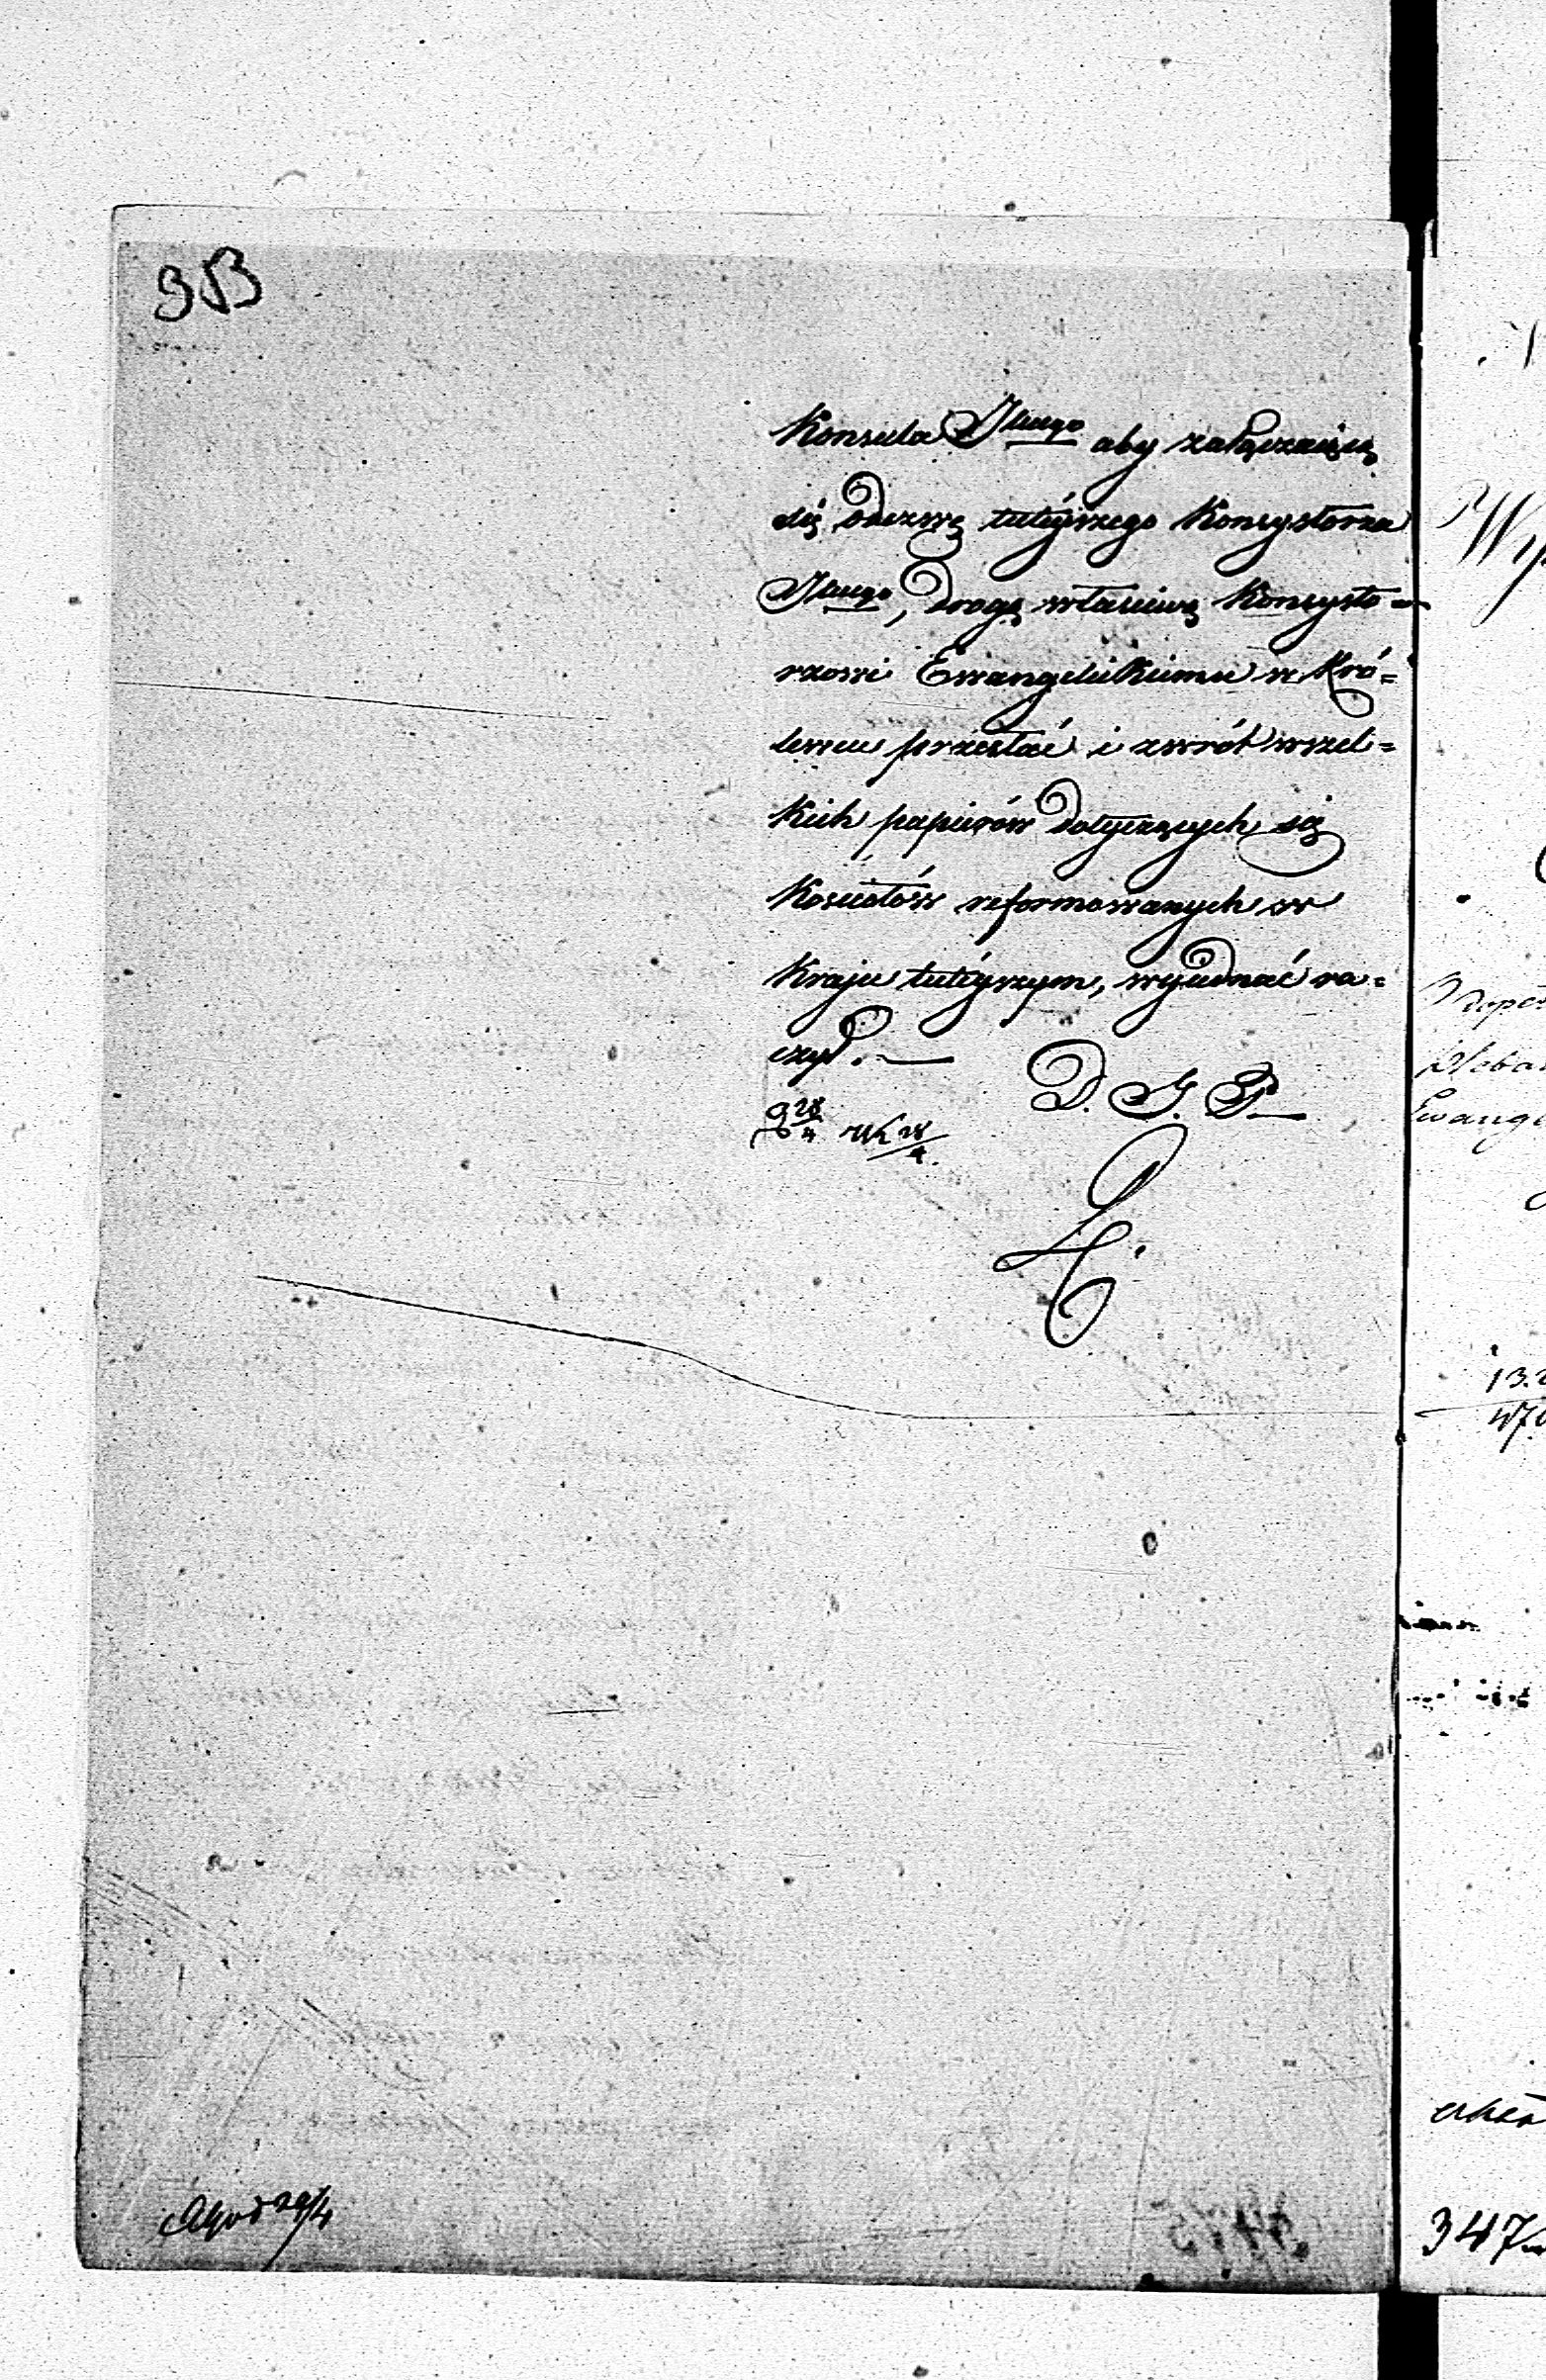 Konsula Jlnego aby załączaiącą
się odezwę tuteyszego Konsystorza
Jlnego, drogą właściwą Konsysto-
rzowi Ewangelickiemu w Kró=
lewcu przesłać i zwrót wszel=
kich papierów dotyczących się
Kościołów reformowanych w
Kraju tuteyszym, wyiednać ra=
czył. —
D. J. P.
28/4 28/4
29/4
13.
347